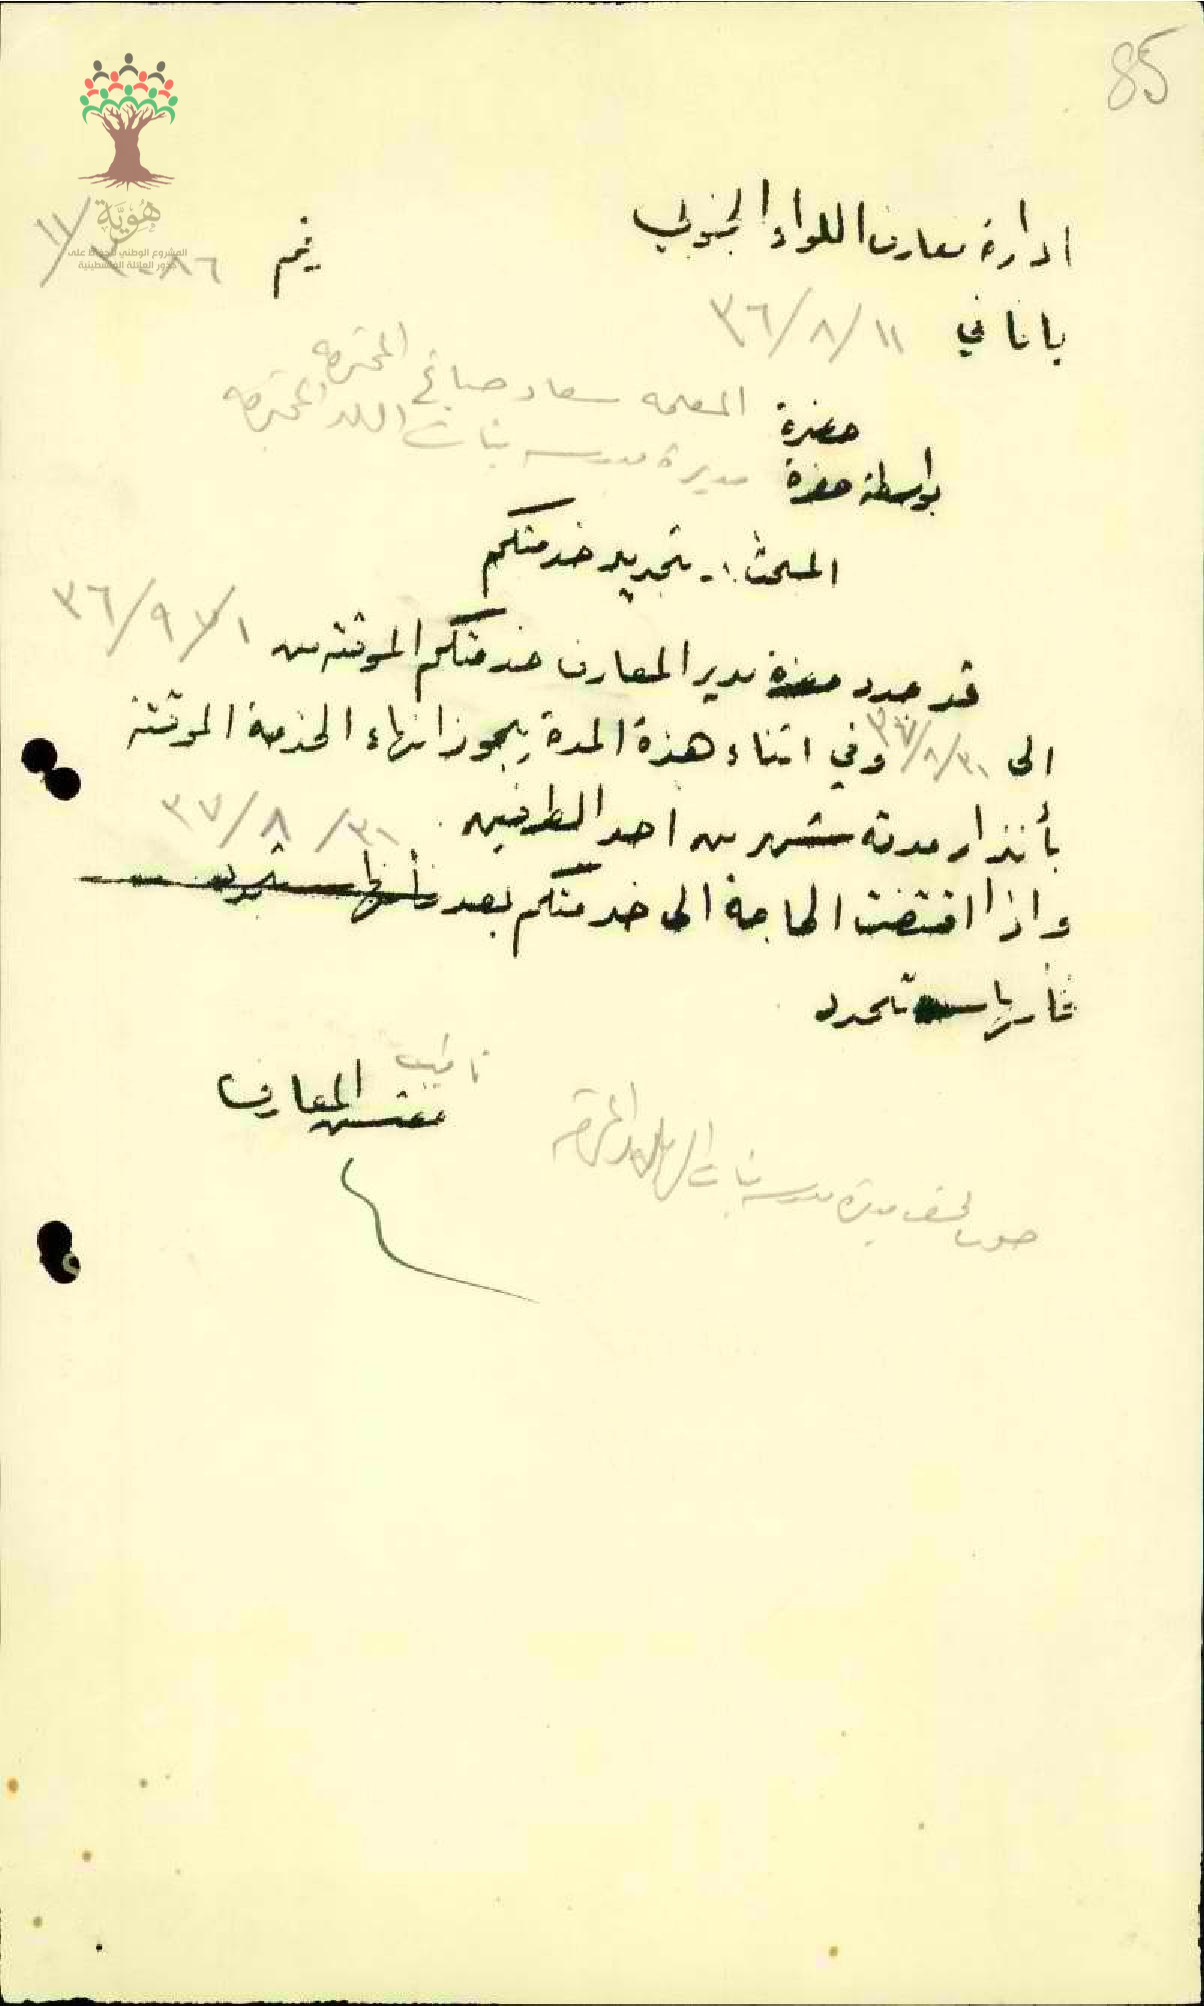 85
هُويَّة
المشروع الوطني للحفاظ على
جذور العائلة الفلسطينية
ادارة معارف اللواء الجنوبي
يافا في ١١/٨/٣٦
حضرة المعلمه سعاد صباغ المحترمه
بواسطة حضرة مديرة مدرسه بنات اللد المحترمه
المبحث :- تجديد خدمتكم
قد جدد حضرة مدير المعارف خدمتكم الموقته من ١/٩/٣٦
الى ٣١/٨/٣٧ وفي اثناء هذة المدة يجوز انهاء الخدمة الموقتة
بأنذار مدته شهر من احد الطرفين
٣١/٨/٣٧
واذا اقتضت الحاجة الى خدمتكم بعد
فأنها ستجدد
مفتش المعارف
مديرة مدرسه بنات